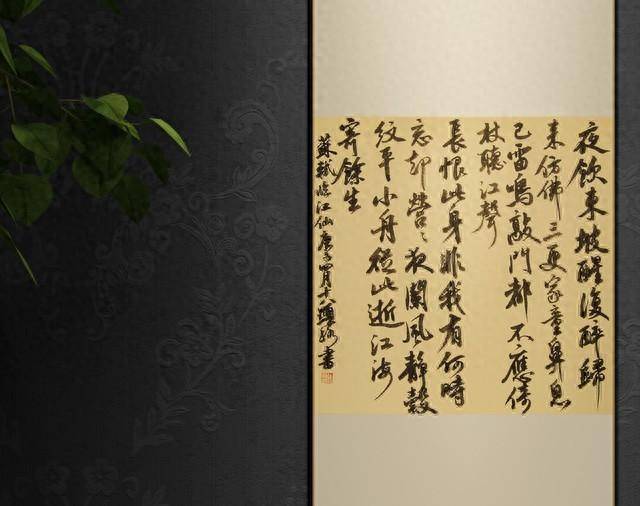 夜飲東坡醒復醉歸
来仿佛三更家童鼻息
已雷鳴敲門都不應倚
杖聽江聲
長恨此身非我有何時
忘却營〻夜闌風靜縠
紋平小舟從此逝江海
寄餘生
蘇軾臨江仙庚子四月十八書